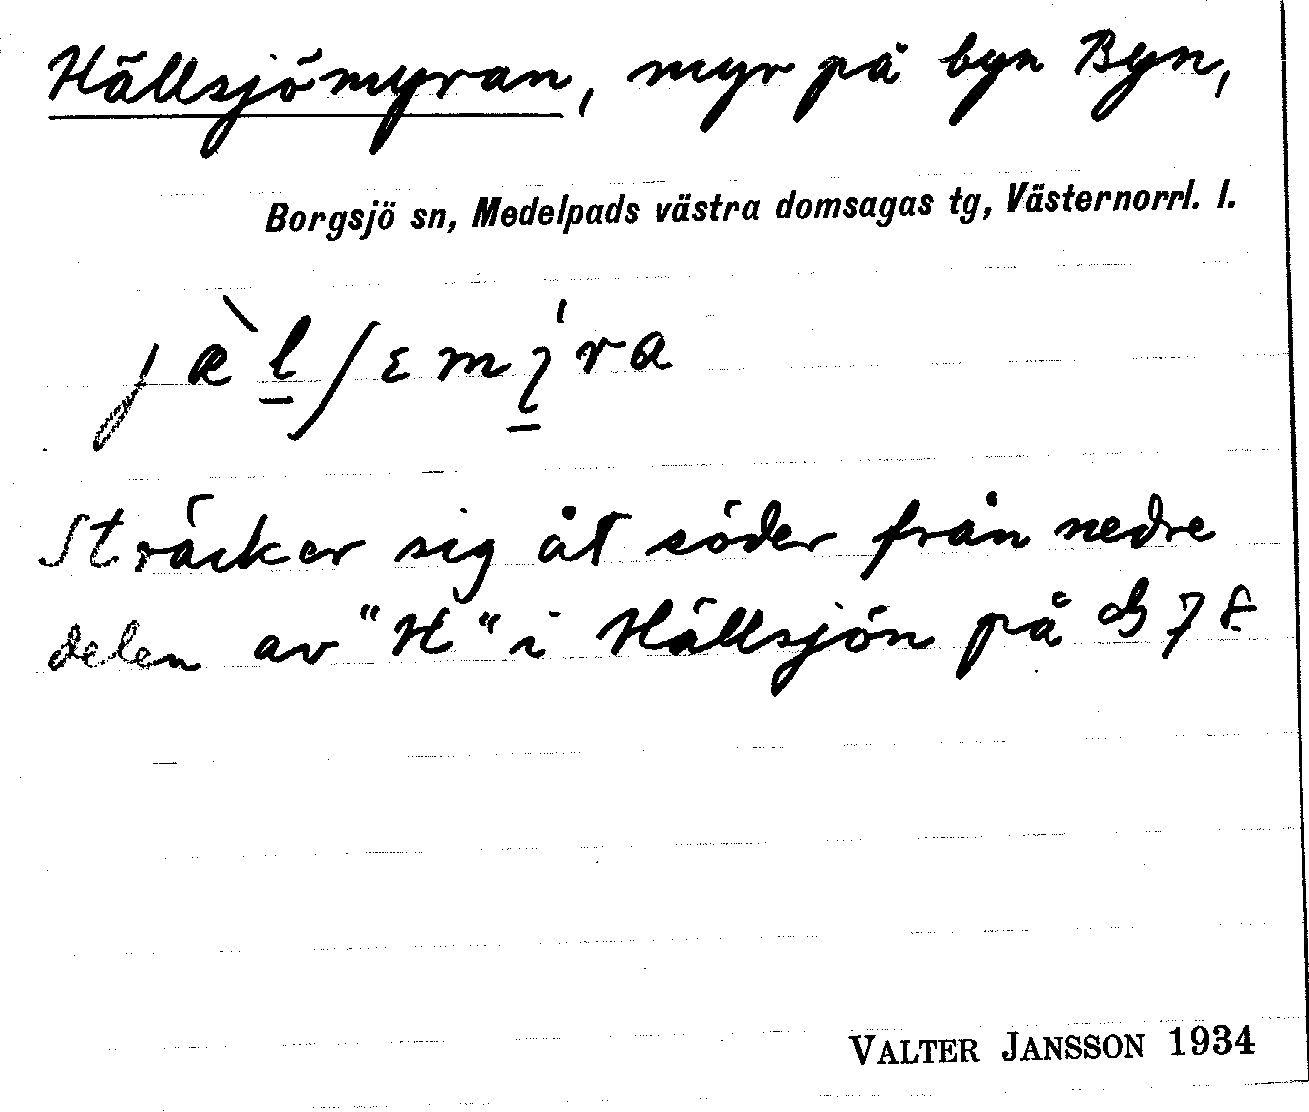 Hällsjömyran, myr på byn Byn,
Borgsjö sn, Medelpads västra domsagas tg, Västernorrl. l.
jæ̀l̲ʃɛmı̲́ra
Sträcker sig åt söder från nedre
delen av "H" i Hällsjön på
VALTER JANSSON 1934